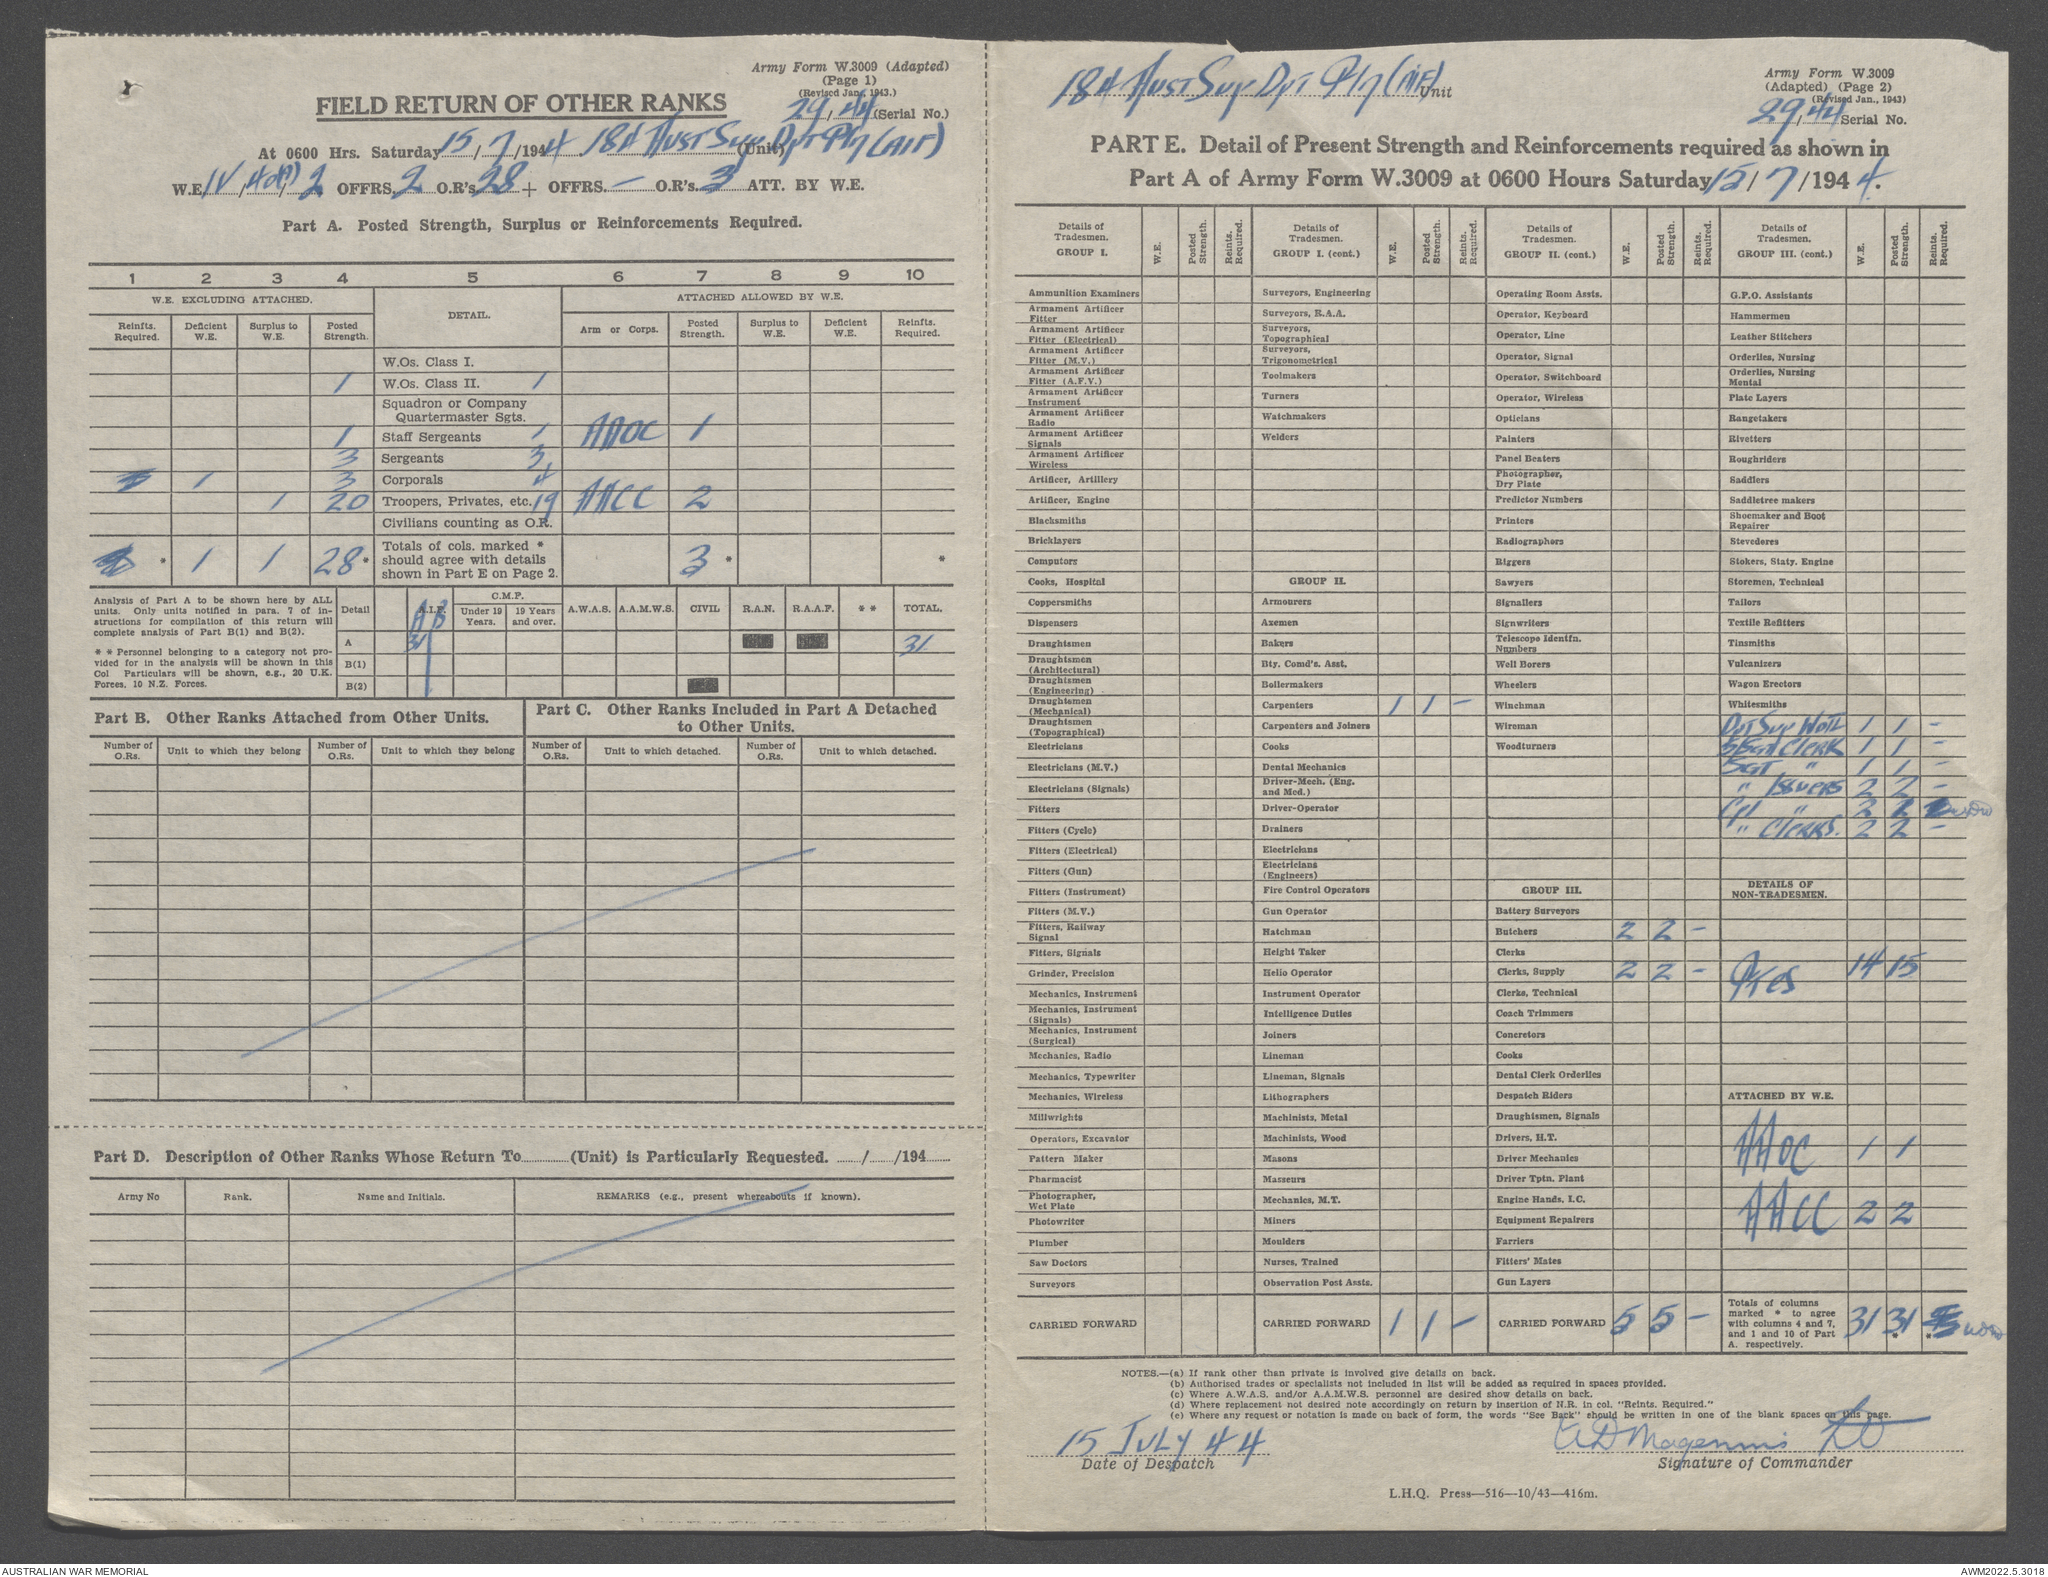 Army Form W.3009 (Adapted)
(Page 1)
(Revised Jan., 1943.)
FIELD RETURN OF OTHER RANKS
29/44 (Serial No.)
At 0600 Hrs. Saturday 15/7/1944 18A Aust Sup Dpt Pln (AIF) (Unit)
W.E. IV / / 2 OFFRS. 2 O.R's. 28 + OFFRS. — O.R's. 3 ATT. BY W.E.
Part A. Posted Strength, Surplus or Reinforcements Required.
1 2 3 4 5 6 7 8 9 10
W.E. EXCLUDING ATTACHED. DETAIL. ATTACHED ALLOWED BY W.E.
Reinfts. Required. Deficient W.E. Surplus to W.E. Posted Strength. Arm or Corps. Posted Strength. Surplus to W.E. Deficient W.E. Reinfts. Required.
W.Os. Class I.
1 W.Os. Class II. 1
Squadron or Company
Quartermaster Sgts.
1 Staff Sergeants 1 AAOC 1
3 Sergeants 3
1 3 Corporals 4
1 20 Troopers, Privates, etc. 19 AACC 2
Civilians counting as O.R.
* 1 1 28 * Totals of cols. marked * should agree with details shown in Part E on Page 2. 3 * *
Analysis of Part A to be shown here by ALL
units. Only units notified in para. 7 of in-
structions for compilation of this return will
complete analysis of Part B(1) and B(2).
* * Personnel belonging to a category not pro-
vided for in the analysis will be shown in this
Col Particulars will be shown, e.g., 20 U.K.
Forces, 10 N.Z. Forces.
Detail A.I.F. C.M.F. Under 19 Years. 19 Years and over. A.W.A.S. A.A.M.W.S. CIVIL R.A.N. R.A.A.F. * * TOTAL.
A 31 31
B(1)
B(2)
Part B. Other Ranks Attached from Other Units.
Part C. Other Ranks Included in Part A Detached
to Other Units.
Number of O.Rs. Unit to which they belong Number of O.Rs. Unit to which they belong Number of O.Rs. Unit to which detached. Number of O.Rs. Unit to which detached.
Part D. Description of Other Ranks Whose Return To (Unit) is Particularly Requested. / /194
Army No Rank. Name and Initials. REMARKS (e.g., present whereabouts if known).
18A Aust Sup Dpt Pln (AIF) Unit
Army Form W.3009
(Adapted) (Page 2)
(Revised Jan., 1943)
29/44 Serial No.
PART E. Detail of Present Strength and Reinforcements required as shown in
Part A of Army Form W.3009 at 0600 Hours Saturday 15/7/1944.
Details of Tradesmen. GROUP I. W.E. Posted Strength. Reints. Required.
Ammunition Examiners
Armament Artificer Fitter
Armament Artificer Fitter (Electrical)
Armament Artificer Fitter (M.V.)
Armament Artificer Fitter (A.F.V.)
Armament Artificer Instrument
Armament Artificer Radio
Armament Artificer Signals
Armament Artificer Wireless
Artificer, Artillery
Artificer, Engine
Blacksmiths
Bricklayers
Computors
Cooks, Hospital
Coppersmiths
Dispensers
Draughtsmen
Draughtsmen (Architectural)
Draughtsmen (Engineering)
Draughtsmen (Mechanical)
Draughtsmen (Topographical)
Electricians
Electricians (M.V.)
Electricians (Signals)
Fitters
Fitters (Cycle)
Fitters (Electrical)
Fitters (Gun)
Fitters (Instrument)
Fitters (M.V.)
Fitters, Railway Signal
Fitters, Signals
Grinder, Precision
Mechanics, Instrument
Mechanics, Instrument (Signals)
Mechanics, Instrument (Surgical)
Mechanics, Radio
Mechanics, Typewriter
Mechanics, Wireless
Millwrights
Operators, Excavator
Pattern Maker
Pharmacist
Photographer, Wet Plate
Photowriter
Plumber
Saw Doctors
Surveyors
CARRIED FORWARD
Details of Tradesmen. GROUP I. (cont.) W.E. Posted Strength. Reints. Required.
Surveyors, Engineering
Surveyors, R.A.A.
Surveyors, Topographical
Surveyors, Trigonometrical
Toolmakers
Turners
Watchmakers
Welders
GROUP II.
Armourers
Axemen
Bakers
Bty. Comd's. Asst.
Boilermakers
Carpenters 1 1 —
Carpenters and Joiners
Cooks
Dental Mechanics
Driver-Mech. (Eng. and Med.)
Driver-Operator
Drainers
Electricians
Electricians (Engineers)
Fire Control Operators
Gun Operator
Hatchman
Height Taker
Helio Operator
Instrument Operator
Intelligence Duties
Joiners
Lineman
Lineman, Signals
Lithographers
Machinists, Metal
Machinists, Wood
Masons
Masseurs
Mechanics, M.T.
Miners
Moulders
Nurses, Trained
Observation Post Assts.
CARRIED FORWARD 1 1 —
Details of Tradesmen. GROUP II. (cont.) W.E. Posted Strength. Reints. Required.
Operating Room Assts.
Operator, Keyboard
Operator, Line
Operator, Signal
Operator, Switchboard
Operator, Wireless
Opticians
Painters
Panel Beaters
Photographer, Dry Plate
Predictor Numbers
Printers
Radiographers
Riggers
Sawyers
Signallers
Signwriters
Telescope Identfn. Numbers
Well Borers
Wheelers
Winchman
Wireman
Woodturners
GROUP III.
Battery Surveyors
Butchers 2 2 —
Clerks
Clerks, Supply 2 2 —
Clerks, Technical
Coach Trimmers
Concretors
Cooks
Dental Clerk Orderlies
Despatch Riders
Draughtsmen, Signals
Drivers, H.T.
Driver Mechanics
Driver Tptn. Plant
Engine Hands, I.C.
Equipment Repairers
Farriers
Fitters' Mates
Gun Layers
CARRIED FORWARD 5 5 —
Details of Tradesmen. GROUP III. (cont.) W.E. Posted Strength. Reints. Required.
G.P.O. Assistants
Hammermen
Leather Stitchers
Orderlies, Nursing
Orderlies, Nursing Mental
Plate Layers
Rangetakers
Rivetters
Roughriders
Saddlers
Saddletree makers
Shoemaker and Boot Repairer
Stevedores
Stokers, Staty. Engine
Storemen, Technical
Tailors
Textile Refitters
Tinsmiths
Vulcanizers
Wagon Erectors
Whitesmiths
Dpt Sup WOII 1 1 —
S/Sgt Clerk 1 1 —
Sgt " 1 1 —
" Issuers 2 2 —
Cpl " 2 2
" Clerks. 2 2 —
DETAILS OF NON-TRADESMEN.
Ptes 14 15
ATTACHED BY W.E.
AAOC 1 1
AACC 2 2
Totals of columns marked * to agree with columns 4 and 7, and 1 and 10 of Part A. respectively. 31 31 * *
NOTES.—(a) If rank other than private is involved give details on back.
(b) Authorised trades or specialists not included in list will be added as required in spaces provided.
(c) Where A.W.A.S. and/or A.A.M.W.S. personnel are desired show details on back.
(d) Where replacement not desired note accordingly on return by insertion of N.R. in col. "Reints. Required."
(e) Where any request or notation is made on back of form, the words "See Back" should be written in one of the blank spaces on this page.
15 July 44
Date of Despatch
Magennis Lt
Signature of Commander
L.H.Q. Press—516—10/43—416m.
AUSTRALIAN WAR MEMORIAL
AWM2022.5.3018